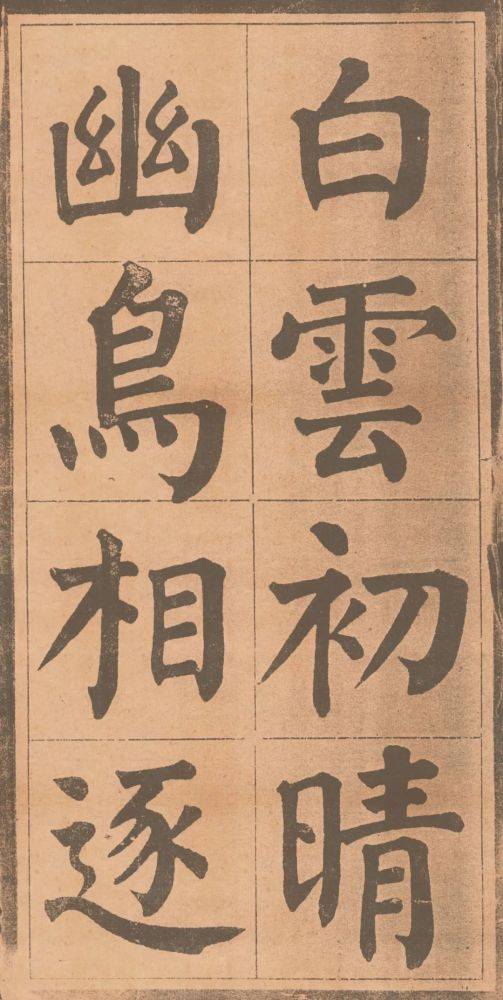 白雲初晴
幽鳥相逐